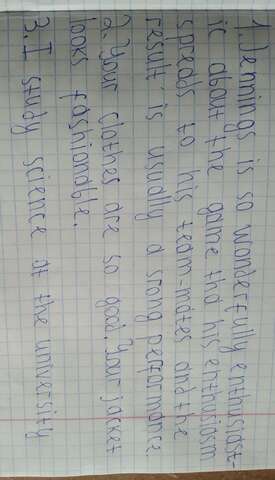 1. Jennings is so wonderfully enthusiast-
ic about the game tha his enthusiasm
spreads to his team-mates and the
result is usually a strong performance
2. Your clothes are so good. Your jacket
looks fashionable.
3. I study science at the university